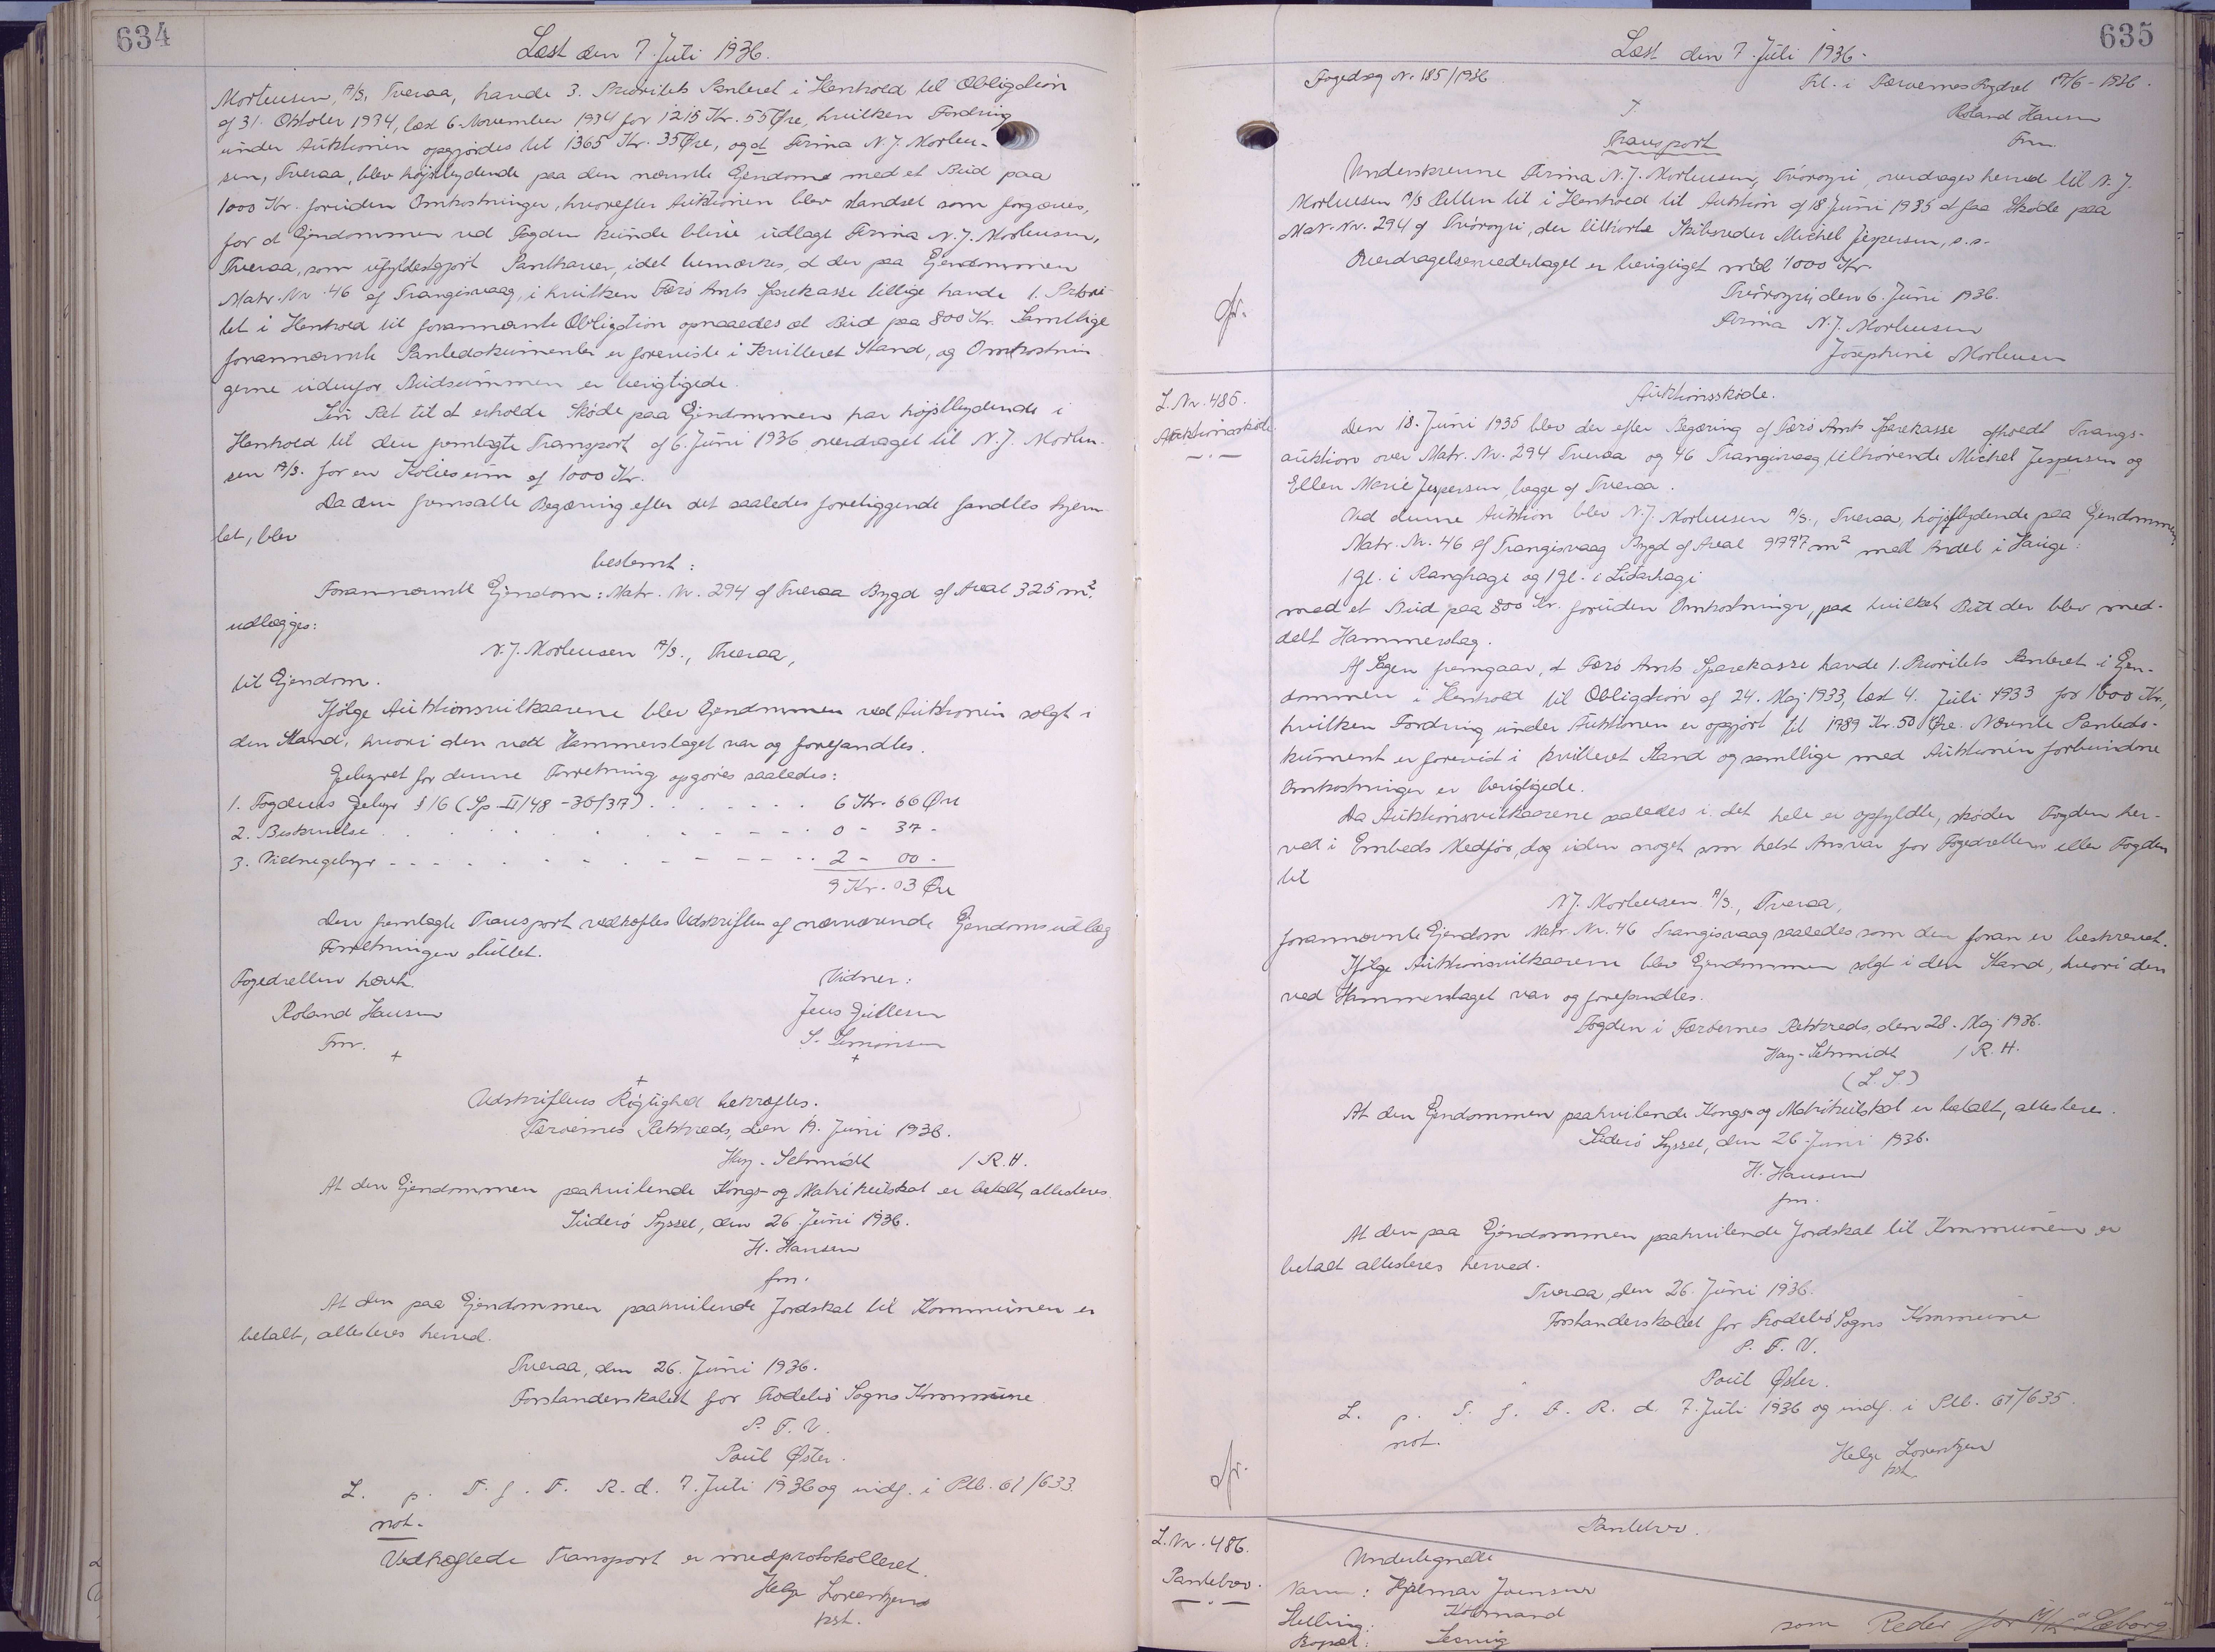 634
Læst den 7. Juli 1936.
Mortensen, A/S, Tveraa, havde 3. Prioritets Panteret i Henhold til Obligation
af 31. Oktober 1934, læst 6. November 1934 for 1215 Kr. 55 Øre, hvilken Fordring
under Auktionen opgjordes til 1365 Kr. 35 Øre, og at Firma N. J. Morten-
sen, Tveraa, blev højstbydende paa den nævnte Ejendom med et Bud paa
1000 Kr. foruden Omkostninger, hvorefter Auktionen blev standset som forgæves,
for at Ejendommen ved Fogden kunde blive udlagt Firma N. J. Mortensen,
Tveraa, som ufyldestgjort Panthaver, idet bemærkes, at der paa Ejendommen
Matr. Nr. 46 af Trangisvaag, i hvilken Færø Amts Sparekasse tillige havde 1. Priori-
tet i Henhold til forannævnte Obligation opnaaedes et Bud paa 800 Kr. Samtlige
forannævnte Pantedokumenter er foreviste i kvitteret Stand, og Omkostnin
gerne udenfor Budsummen er berigtigede.
Sin Ret til at erholde Skøde paa Ejendommen har højstbydende i
Henhold til den fremlagte Transport af 6. Juni 1936 overdraget til N. J. Morten-
sen A/S. for en Købesum af 1000 Kr.
Da den fremsatte Begæring efter det saaledes foreliggende fandtes hjem-
let, blev
bestemt:
Forannævnte Ejendom: Matr. Nr. 294 af Tveraa Bygd af Areal 325 m².
udlægges:
N. J. Mortensen A/S., Tveraa,
til Ejendom.
Ifølge Auktionsvilkaarene blev Ejendommen ved Auktionen solgt i
den Stand, hvori den ved Hammerslaget var og forefandtes.
Gebyret for denne Forretning opgøres saaledes:
1. Fogdens Gebyr § 16 (Sp. II/48 - 30/37) . . . . . . 6 Kr. 66 Øre
2. Beskrivelse . . . . . . . 0 - 37 -
3. Vidnegebyr - - - . . . . . . 2 - 00 -
9 Kr. 03 Øre
Den fremlagte Transport vedhæftes Udskriften af nærværende Ejendomsudlæg
Forretningen sluttet.
Fogedretten hævet.
Vidner:
Roland Hansen
Jens
Fm.
S. Simonsen
+ +
+
Udskriftens Rigtighed bekræftes.
Færøernes Retskreds, den 19. Juni 1936.
Hey-Schmidt / R. H.
At den Ejendommen paahvilende Kongs- og Matrikulskat er betalt, attesteres.
Suderø Syssel, den 26. Juni 1936.
H. Hansen
fm.
At den paa Ejendommen paahvilende Jordskat til Kommunen er
betalt, attesteres herved.
Tveraa, den 26. Juni 1936.
Forstanderskabet for Frodebø Sogns Kommune
P. F. V.
Poul Øster.
L. p. T. f. F. R. d. 7. Juli 1936 og indf. i Ptb. 61/633.
not.
Vedhæftede Transport er medprotokolleret.
Helge Lorentzen
kst.
635
Læst den 7. Juli 1936.
Fogedsag Nr. 185/1936
Frl. i Færøernes Fogdret 19/6 - 1936.
Roland Hansen
Fm.
T.
Transport
Underskrevne Firma N. J. Mortensen, Tvöroyri, overdrager herved til N. J.
Mortensen A/S Retten til i Henhold til Auktion af 18. Juni 1935 at faa Skøde paa
Matr. Nr. 294 af Tvöroyri, der tilhørte Skibsreder Michel Jespersen, s. s.
Overdragelsesvederlaget er berigtiget med 1000 Kr.
Tvöroyri, den 6. Juni 1936.
Firma N. J. Mortensen
Josephine Mortensen
afr.
L. Nr. 485.
Auktionsskøde
Auktionsskøde.
Den 18. Juni 1935 blev der efter Begæring af Færø Amts Sparekasse afholdt Tvangs-
auktion over Matr. Nr. 294 Tveraa og 46 Trangisvaag tilhørende Michel Jespersen og
Ellen Marie Jespersen, begge af Tveraa.
Ved denne Auktion blev N. J. Mortensen A/S., Tveraa, højstbydende paa Ejendommen
Matr. Nr. 46 af Trangisvaag Bygd af Areal 9797 m² med Andel i Hauge:
1 gl. i Ranghagi og 1 gl. i Lidarhagi
med et Bud paa 800 Kr. foruden Omkostninger, paa hvilket Bud der blev med-
delt Hammerslag.
Af Sagen fremgaar, at Færø Amts Sparekasse havde 1. Prioritets Panteret i Ejen-
dommen i Henhold til Obligation af 24. Maj 1933, læst 4. Juli 1933 for 1600 Kr.,
hvilken Fordring under Auktionen er opgjort til 1789 Kr. 50 Øre. Nævnte Pantedo-
kument er forevist i kvitteret Stand og samtlige med Auktionen forbundne
Omkostninger er berigtigede.
Da Auktionsvilkaarene saaledes i det hele er opfyldte, skøder Fogden her-
ved i Embeds Medfør, dog uden noget som helst Ansvar for Fogedretten eller Fogden
til
N. J. Mortensen A/S., Tveraa,
forannævnte Ejendom Matr. Nr. 46 Trangisvaag saaledes som den foran er beskrevet.
Ifølge Auktionsvilkaarene blev Ejendommen solgt i den Stand, hvori den
ved Hammerslaget var og forefandtes.
Fogden i Færøernes Retskreds, den 28. Maj 1936.
Hey-Schmidt / R. H.
(L. S.)
At den Ejendommen paahvilende Kongs- og Matrikulskat er betalt, attesteres.
Suderø Syssel, den 26. Juni 1936.
H. Hansen
fm.
At den paa Ejendommen paahvilende Jordskat til Kommunen er
betalt attesteres herved.
Tveraa, den 26. Juni 1936.
Forstanderskabet for Frodebø Sogns Kommune
P. F. V.
Poul Øster.
L. p. T. f. F. R. d. 7. Juli 1936 og indf. i Ptb. 61/635.
not.
Helge Lorentzen
kst.
afr.
L. Nr. 486.
Pantebrev.
Pantebrev.
Undertegnede
Navn: Hjalmar Joensen
Stilling: Købmand
Bopæl:
som Reder for M/K "Søborg"